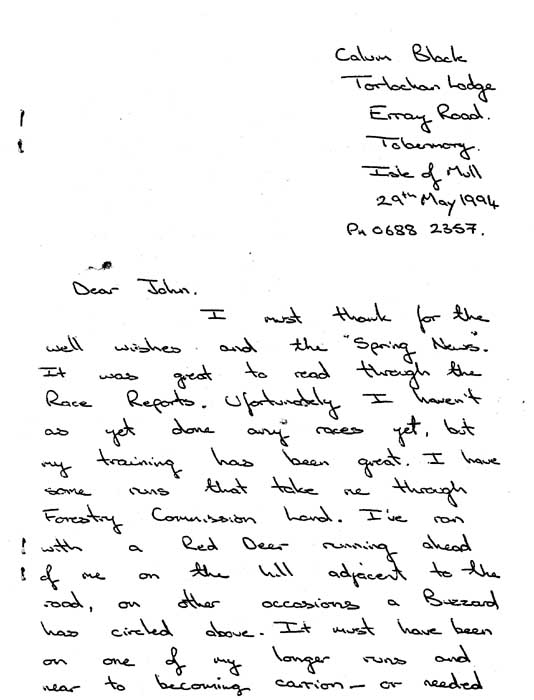 Calum Black
Torlochan Lodge
Erray Road.
Tobermory.
Isle of Mull
29th May 1994
Pn 0688 2357.
Dear John.
I must thank for the
well wishes and the "Spring News".
It was great to read through the
Race Reports. Ufortunately I haven't
as yet done any races yet, but
my training has been great. I have
some runs that take me through
Forestry Commission land. I've ran
with a Red Deer running ahead
of me on the hill adjacent to the
road, on other occasions a Buzzard
has circled above. It must have been
on one of my longer runs and
near to becoming carrion - or needed